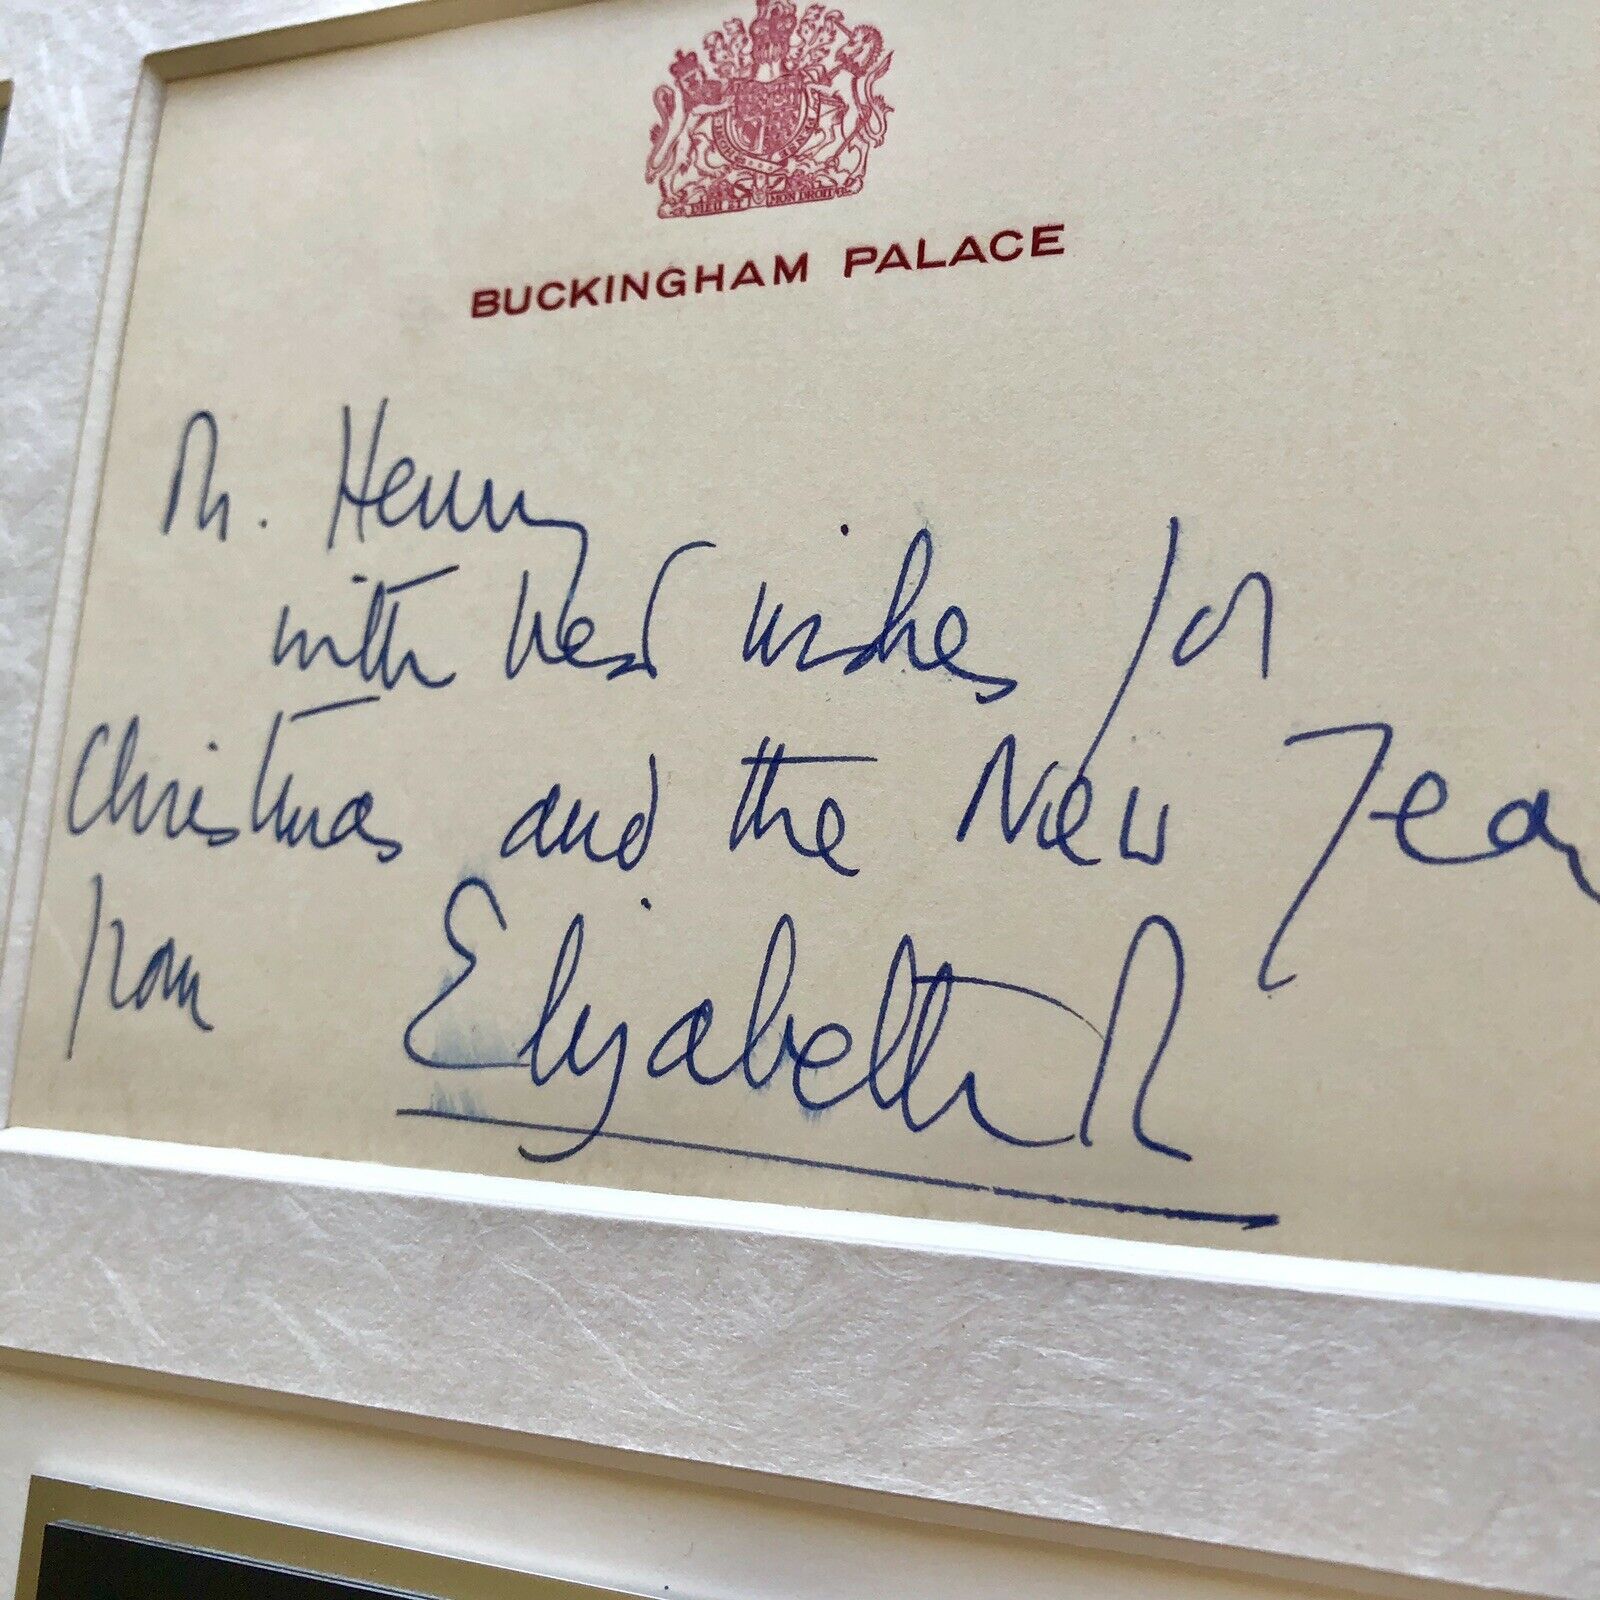 DIEU ET MON DROIT
BUCKINGHAM PALACE
Mr. Henry
with best wishes for
Christmas and the New Year
from Elizabeth R